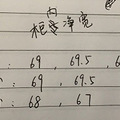 内
柜净宽
: 69 , 69.5 , 6
: 69 , 69.5
: 68 , 67